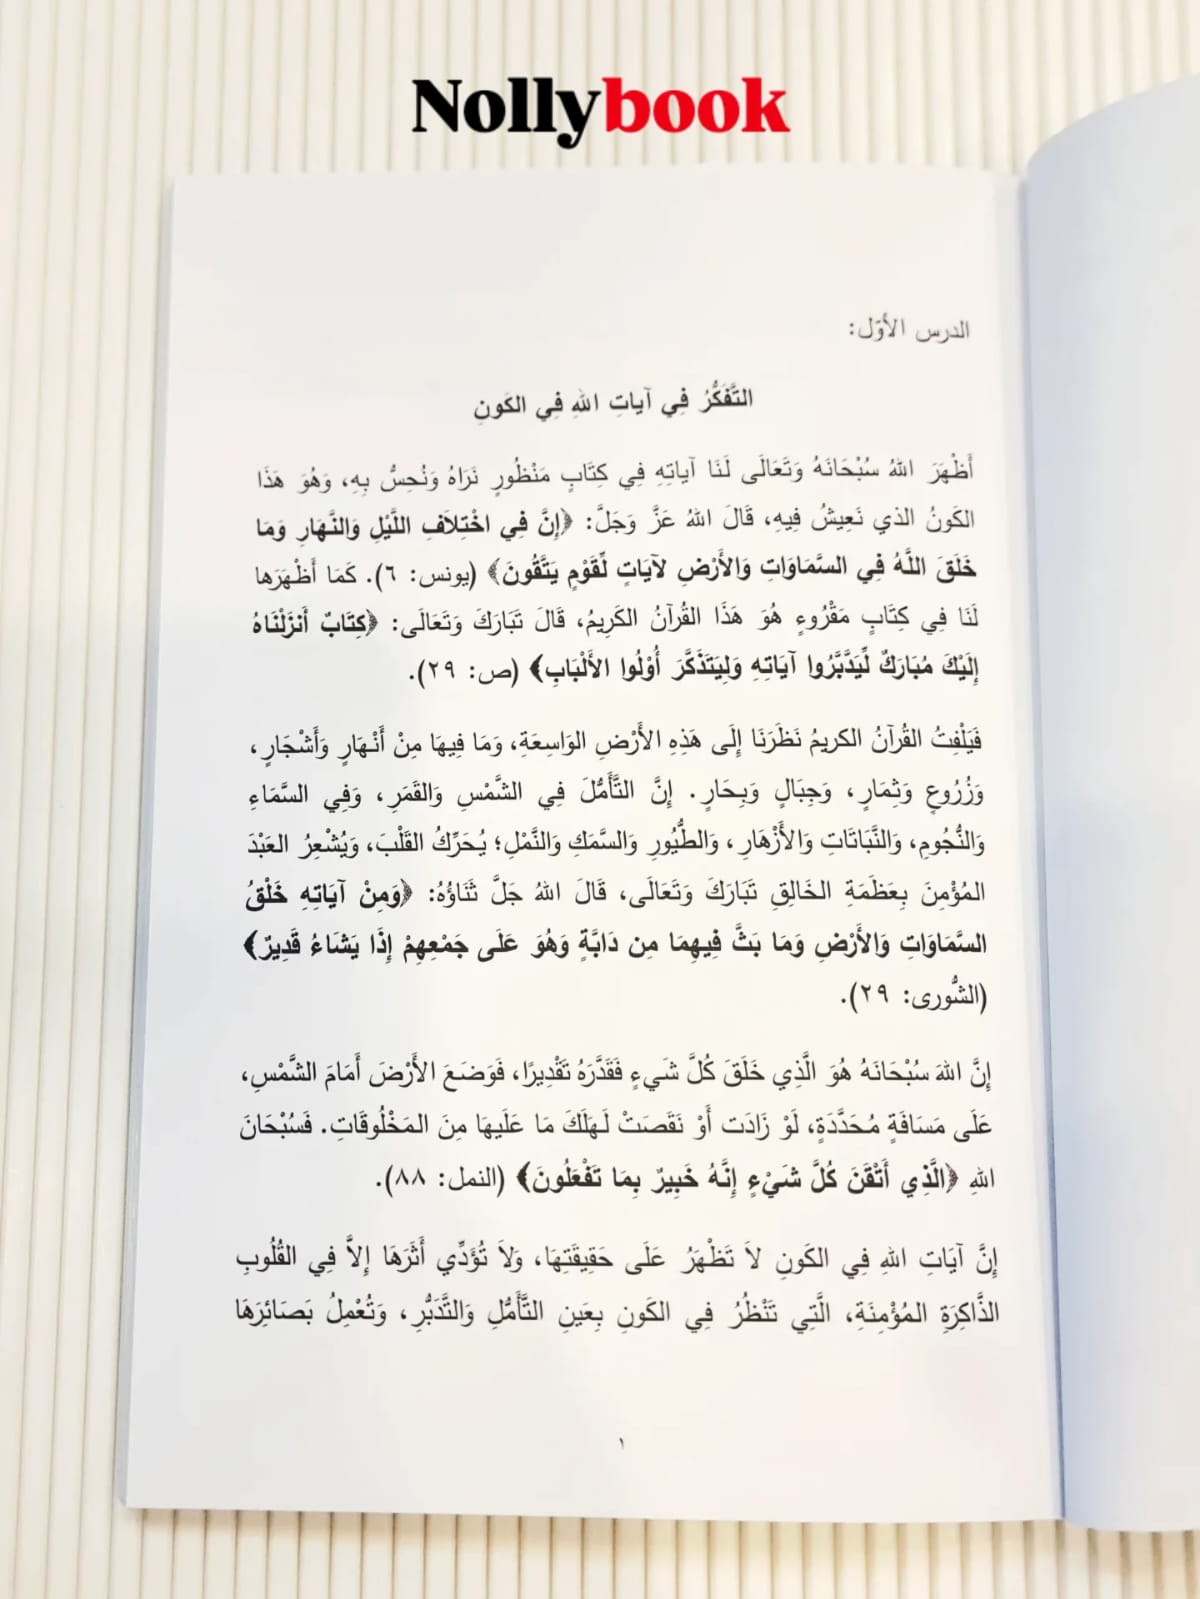 Nollybook
الدرس الأوّل:
التَّفَكُّرُ فِي آيَاتِ اللهِ فِي الكَونِ
أَظْهَرَ اللهُ سُبْحَانَهُ وَتَعَالَى لَنَا آياتِهِ فِي كِتَابٍ مَنْظُورٍ نَرَاهُ وَنُحِسُّ بِهِ، وَهُوَ هَذَا
الكَونُ الذي نَعِيشُ فِيهِ، قَالَ اللهُ عَزَّ وَجَلَّ: ﴿إِنَّ فِي اخْتِلاَفِ اللَّيْلِ وَالنَّهَارِ وَمَا
خَلَقَ اللَّهُ فِي السَّمَاوَاتِ وَالأَرْضِ لآيَاتٍ لِّقَوْمٍ يَتَّقُونَ﴾ (يونس: ٦). كَمَا أَظْهَرَها
لَنَا فِي كِتَابٍ مَقْرُوءٍ هُوَ هَذَا القُرآنُ الكَرِيمُ، قَالَ تَبَارَكَ وَتَعَالَى: ﴿كِتَابٌ أَنزَلْنَاهُ
إِلَيْكَ مُبَارَكٌ لِّيَدَّبَّرُوا آيَاتِهِ وَلِيَتَذَكَّرَ أُوْلُوا الأَلْبَابِ﴾ (ص: ٢٩).
فَيَلْفِتُ القُرآنُ الكريمُ نَظَرَنَا إِلَى هَذِهِ الأَرْضِ الوَاسِعَةِ، وَمَا فِيهَا مِنْ أَنْهَارٍ وَأَشْجَارٍ،
وَزُرُوعٍ وَثِمَارٍ، وَجِبَالٍ وَبِحَارٍ. إِنَّ التَّأَمُّلَ فِي الشَّمْسِ وَالقَمَرِ، وَفِي السَّمَاءِ
وَالنُّجُومِ، وَالنَّبَاتَاتِ وَالأَزْهَارِ، وَالطُّيُورِ وَالسَّمَكِ وَالنَّمْلِ؛ يُحَرِّكُ القَلْبَ، وَيُشْعِرُ العَبْدَ
المُؤْمِنَ بِعَظَمَةِ الخَالِقِ تَبَارَكَ وَتَعَالَى، قَالَ اللهُ جَلَّ ثَنَاؤُهُ: ﴿وَمِنْ آيَاتِهِ خَلْقُ
السَّمَاوَاتِ وَالأَرْضِ وَمَا بَثَّ فِيهِمَا مِن دَابَّةٍ وَهُوَ عَلَى جَمْعِهِمْ إِذَا يَشَاءُ قَدِيرٌ﴾
(الشُّورى: ٢٩).
إِنَّ اللهَ سُبْحَانَهُ هُوَ الَّذِي خَلَقَ كُلَّ شَيءٍ فَقَدَّرَهُ تَقْدِيرًا، فَوَضَعَ الأَرْضَ أَمَامَ الشَّمْسِ،
عَلَى مَسَافَةٍ مُحَدَّدَةٍ، لَوْ زَادَت أَوْ نَقَصَتْ لَهَلَكَ مَا عَلَيهَا مِنَ المَخْلُوقَاتِ. فَسُبْحَانَ
اللهِ ﴿الَّذِي أَتْقَنَ كُلَّ شَيْءٍ إِنَّهُ خَبِيرٌ بِمَا تَفْعَلُونَ﴾ (النمل: ٨٨).
إِنَّ آيَاتِ اللهِ فِي الكَونِ لاَ تَظْهَرُ عَلَى حَقِيقَتِهَا، وَلاَ تُؤَدِّي أَثَرَهَا إِلاَّ فِي القُلُوبِ
الذَّاكِرَةِ المُؤْمِنَةِ، الَّتِي تَنْظُرُ فِي الكَونِ بِعَينِ التَّأَمُّلِ وَالتَّدَبُّرِ، وَتُعْمِلُ بَصَائِرَهَا
١